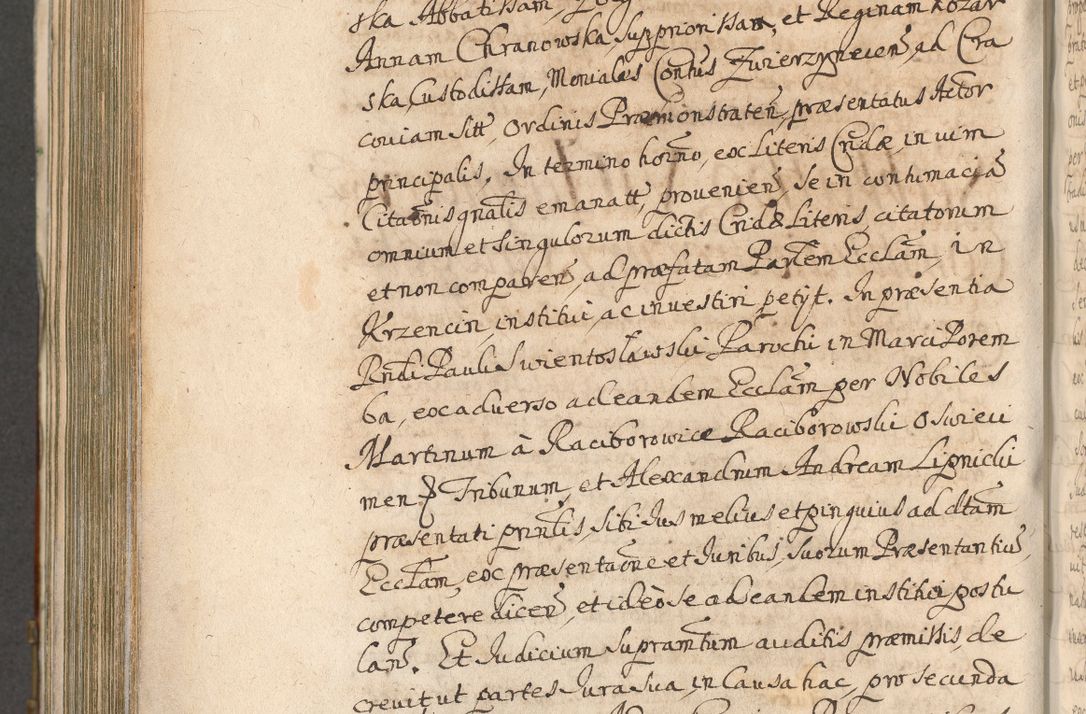 ska Abbatissam,
Annam Chranowska Suppriorissam, et Reginam Kozar
ska Custodissam, Moniales Contus Zwierzynecen ad Cra
coviam Sitt Ordinis Præmonstraten, præsentatus Actor
principalis. In termino horno, ex Literis Cridæ, in vim
Citaonis gnalis emanatt, provenien, se in contumacia
omnium et singulorum dictis Crid& Literis, citatorum
et non comparen, ad præfatam Parlem Ecclam, in
Krzencin, institui, ac investiri petijt. In præsentia
Rndi Pauli Swientoslawski Parochi in Marci Porem
ba, ex adverso ad eandem Ecclam per Nobiles
Martinum à Raciborowice Raciborowski Oswieci
men Tribunum, et Alexandrum Andream Lignicki
præsentati prinlis, sibi Jus melius et pinguius ad dtam
Ecclam, ex præsentaone et Juribus, suorum Præsentantiu,
competere dicen, et ideò se ad eandem institui postu
lan. Et Judicium supramtum auditis præmissis, de
crevit ut partes Jura sua, in Causa hac, pro secunda